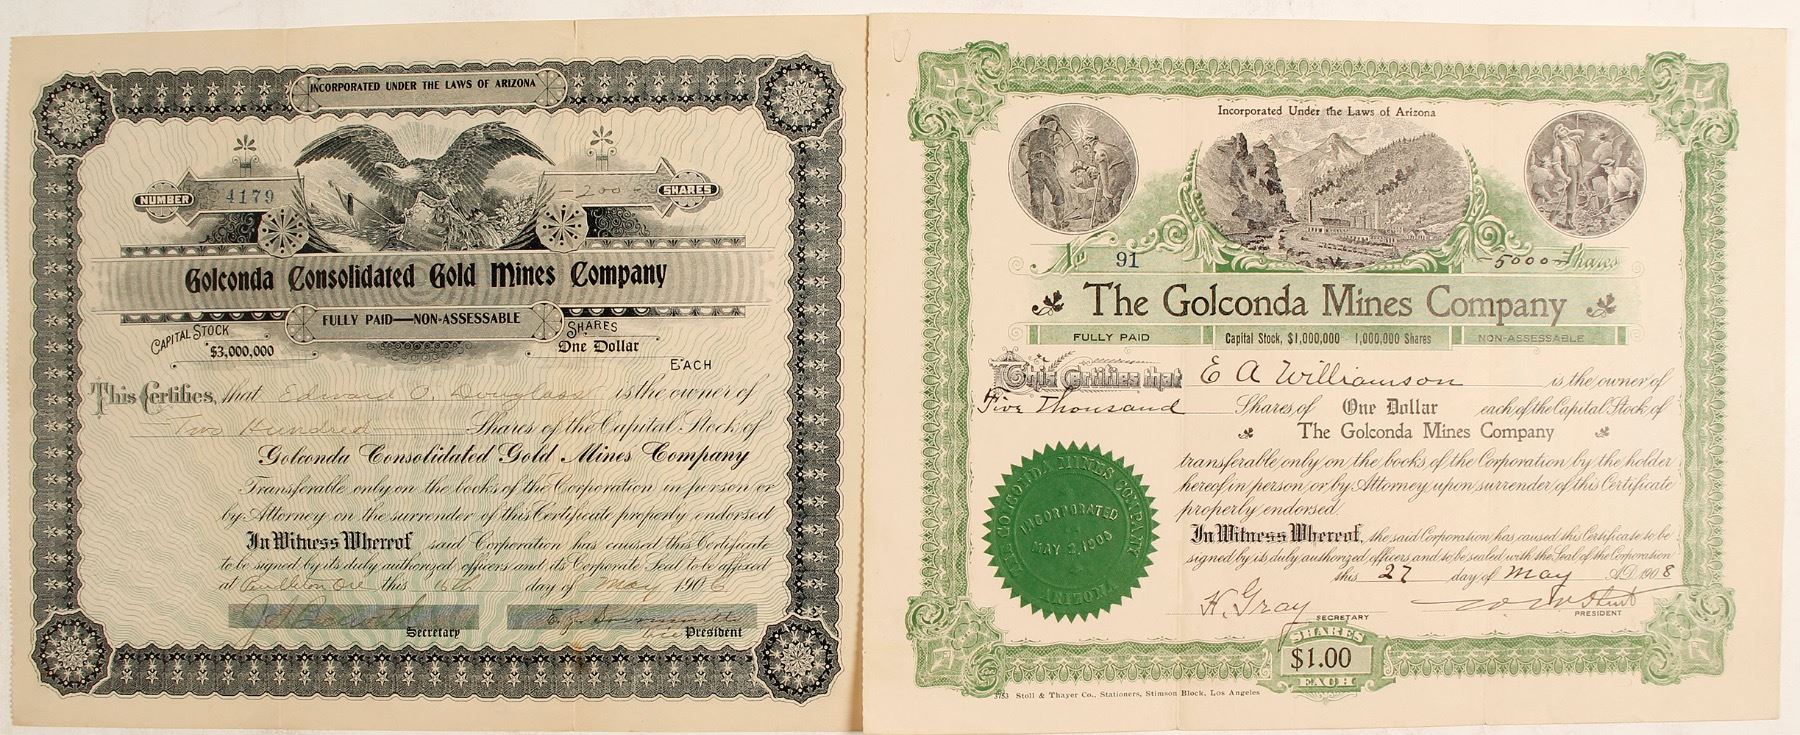 INCORPORATED UNDER THE LAWS OF ARIZONA
NUMBER 4179
-200- SHARES
Golconda Consolidated Gold Mines Company
FULLY PAID—NON-ASSESSABLE
CAPITAL STOCK
$3,000,000
SHARES
One Dollar
EACH
This Certifies, that Edward O. Douglass is the owner of
Two Hundred Shares of the Capital Stock of
Golconda Consolidated Gold Mines Company
Transferable only on the books of the Corporation in person or
by Attorney on the surrender of this Certificate properly endorsed
In Witness Whereof said Corporation has caused this Certificate
to be signed by its duly authorized officers and its Corporate Seal to be affixed
at this 16th day of May 1906
Secretary
Vice President
Incorporated Under the Laws of Arizona
No 91
-5000- Shares
The Golconda Mines Company
FULLY PAID
Capital Stock, $1,000,000 1,000,000 Shares
NON-ASSESSABLE
This Certifies that E A Williamson is the owner of
Five Thousand Shares of One Dollar each of the Capital Stock of
The Golconda Mines Company
transferable only on the books of the Corporation by the holder
hereof in person or by Attorney upon surrender of this Certificate
properly endorsed.
In Witness Whereof, the said Corporation has caused this Certificate to be
signed by its duly authorized officers and to be sealed with the Seal of the Corporation
this 27 day of May A.D. 1908
THE GOLCONDA MINES COMPANY
INCORPORATED
MAY 2, 1903
ARIZONA
H. Gray
SECRETARY
PRESIDENT
SHARES
$1.00
EACH
3753 Stoll & Thayer Co., Stationers, Stimson Block, Los Angeles